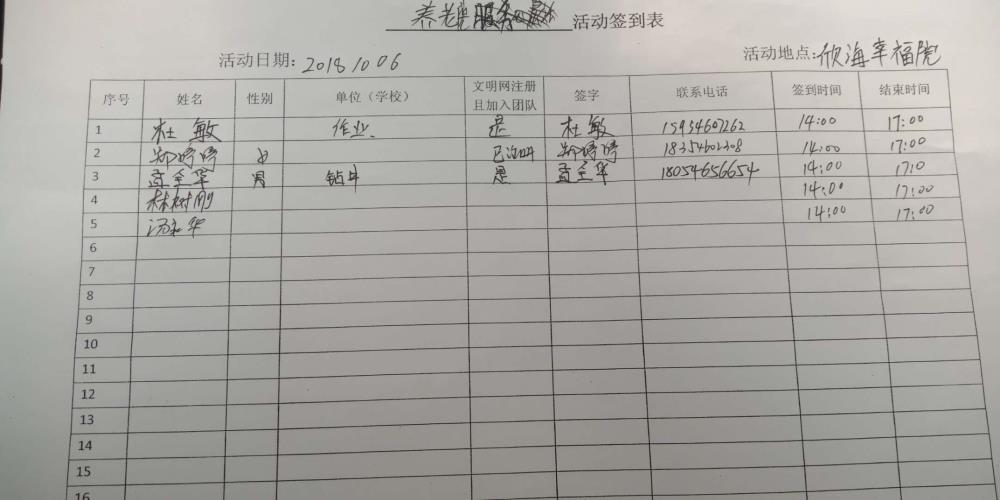 养老院服务 活动签到表
活动日期: 20181006 活动地点: 欣海幸福院
序号 姓名 性别 单位(学校) 文明网注册且加入团队 签字 联系电话 签到时间 结束时间
1 杜敏 作业、 是 杜敏 15934607262 14:00 17:00
2 郑婷婷 女 已注册 郑婷婷 18354602308 14:00 17:00
3 男 钻井 是 18054656654 14:00 17:0
4 林树刚 14:00 17:00
5 14:00 17:00
6
7
8
9
10
11
12
13
14
15
16